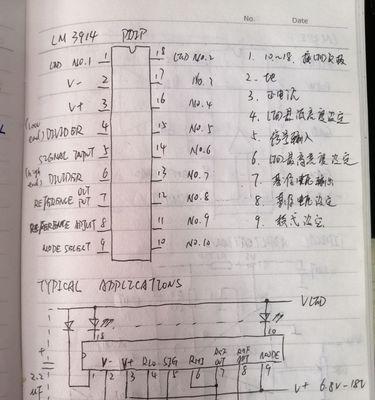 No.
Date
LM 3914 PDIP
LED NO.1 1 18 LED NO.2 1. 10~18. 接LED负极
V- 2 17 No.3 2. 地
V+ 3 16 No.4 3. 正电源
(low end) DIVIDER 4 15 NO.5 4. LED最低亮度设定
SIGNAL INPUT 5 14 NO.6 5. 信号输入
(high end) DIVIDER 6 13 NO.7 6. LED最高亮度设定
REFERENCE OUTPUT 7 12 NO.8 7. 基准电压输出
REFERENCE ADJUST 8 11 NO.9 8. 基准电压设定
MODE SELECT 9 10 NO.10 9. 模式设定
TYPICAL APPLICATIONS
VLED
18 10
V- V+ RLO SIG RHI REF OUT REF ADJ MODE
1 2 3 4 5 6 7 8 9
2.2 μF
V+ 6.8V-18V